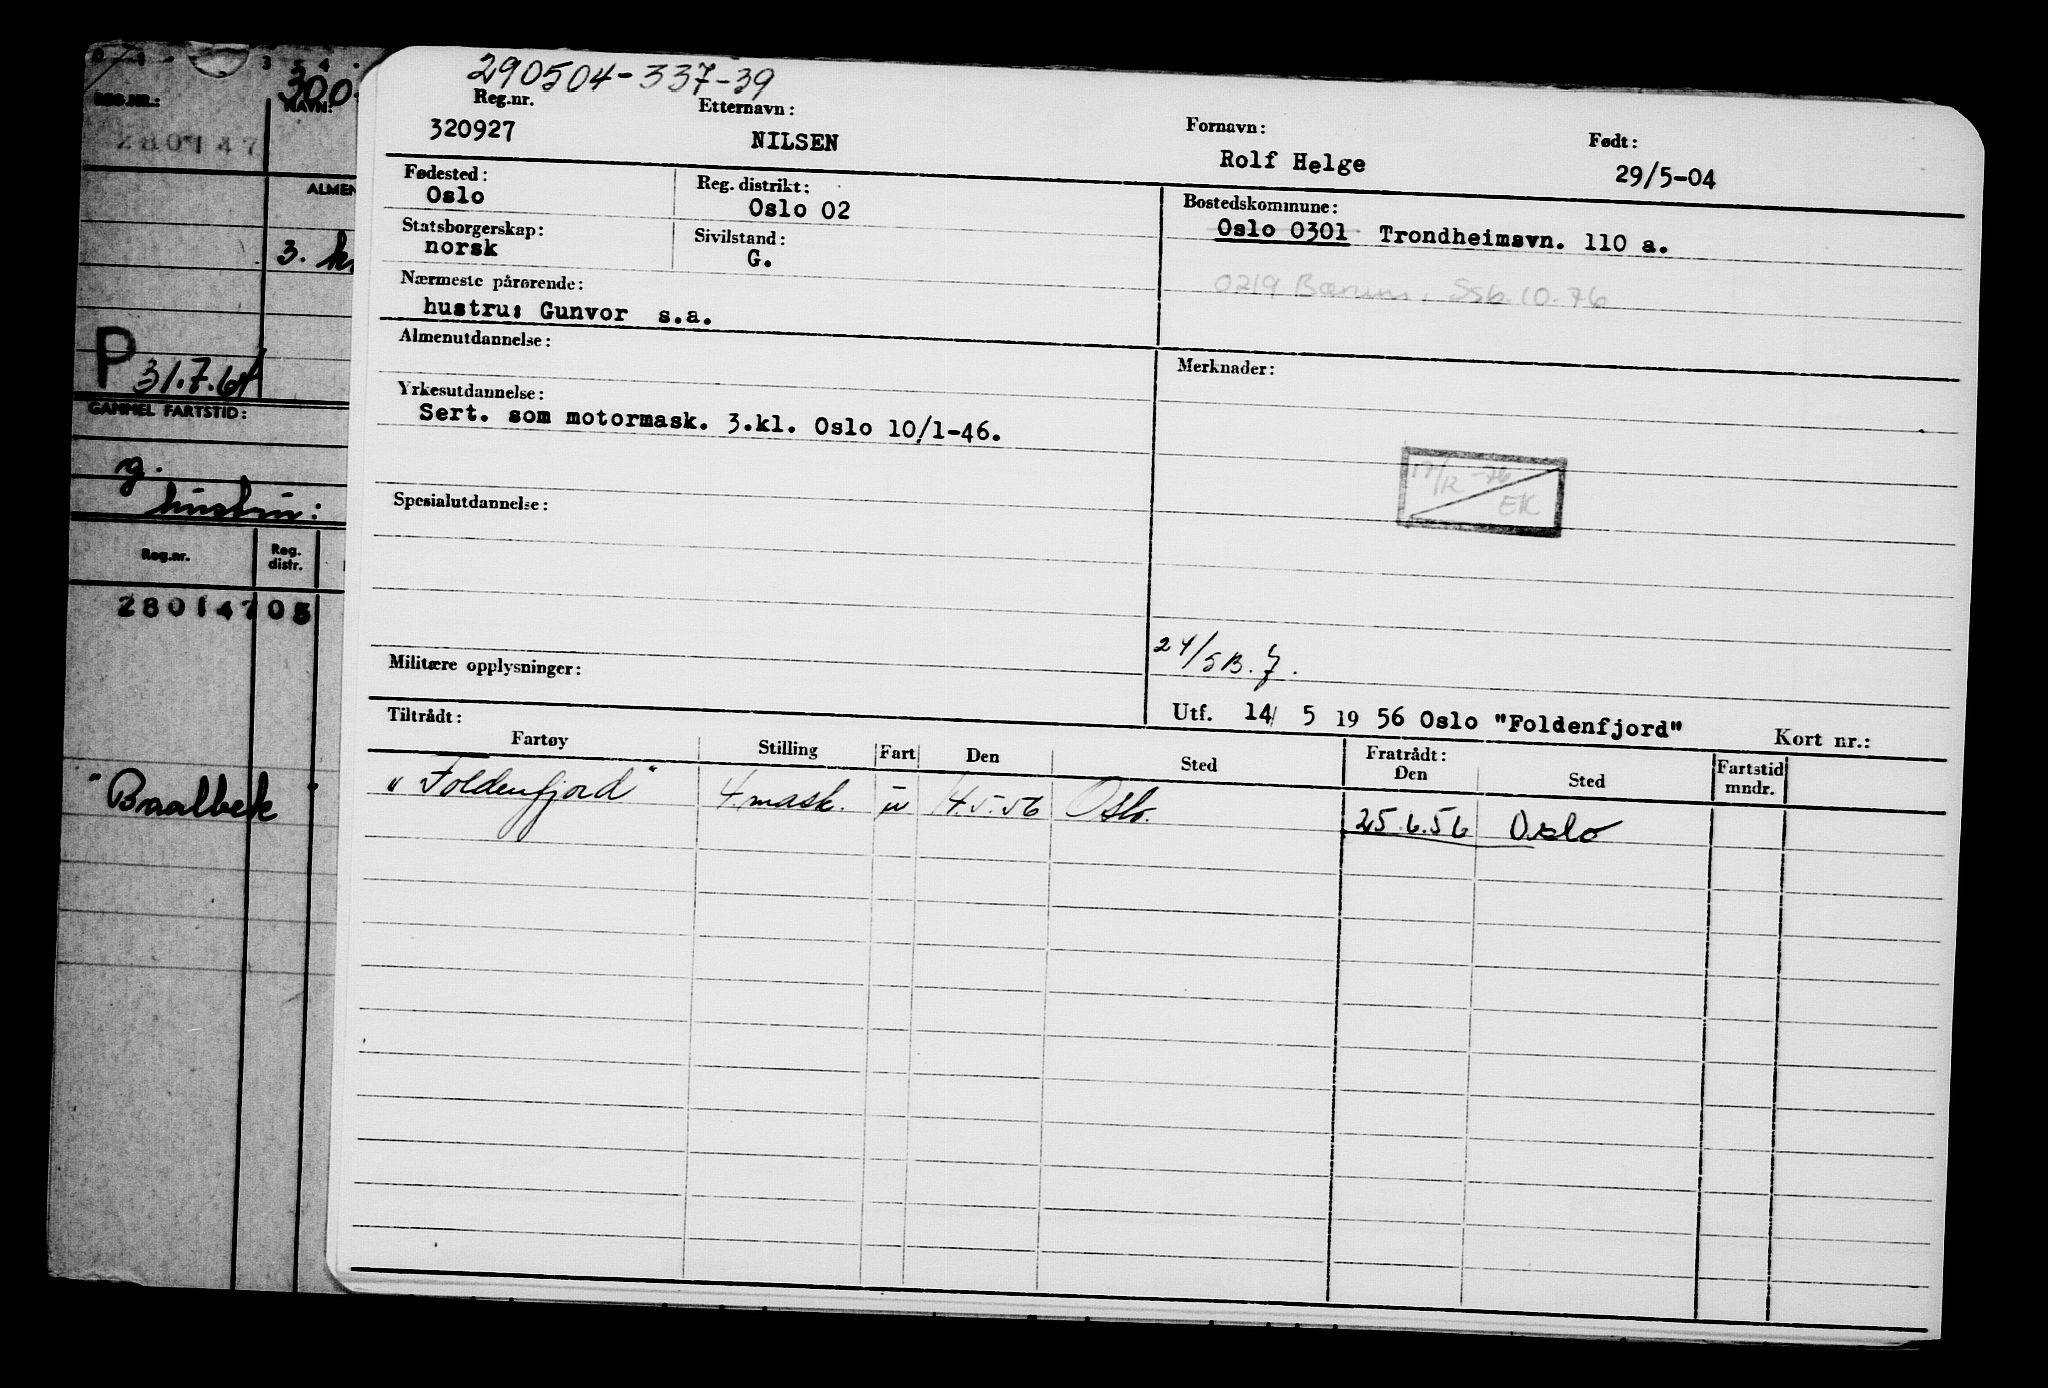 290504-337-39
Reg.nr. Etternavn: Fornavn: Født:
320927 NILSEN Rolf Helge 29/5-04
Fødested: Reg. distrikt: Bostedskommune:
Oslo Oslo 02 Oslo 0301 Trondheimsvn. 110 a.
Statsborgerskap: Sivilstand:
norsk G.
0219 Bærum, Ssb. 10.76
Nærmeste pårørende:
hustru: Gunvor s.a.
Almenutdannelse: Merknader:
Yrkesutdannelse:
Sert. som motormask. 3.kl. Oslo 10/1-46.
17/12 -76
EK
Spesialutdannelse:
Militære opplysninger:
Tiltrådt: Utf. 14/ 5 19 56 Oslo "Foldenfjord" Kort nr.:
Fartøy Stilling Fart Den Sted Fratrådt: Den Sted Fartstid mndr.
"Foldenfjord" 4. mask. u 14.5.56 Oslo. 25.6.56 Oslo
300
REG.NR.: NAVN:
280147
ALMEN
3.
P 31.7.64
GAMMEL FARTSTID:
g.
hustru:
Reg.nr. Reg. distr.
28014705
"Baalbek"